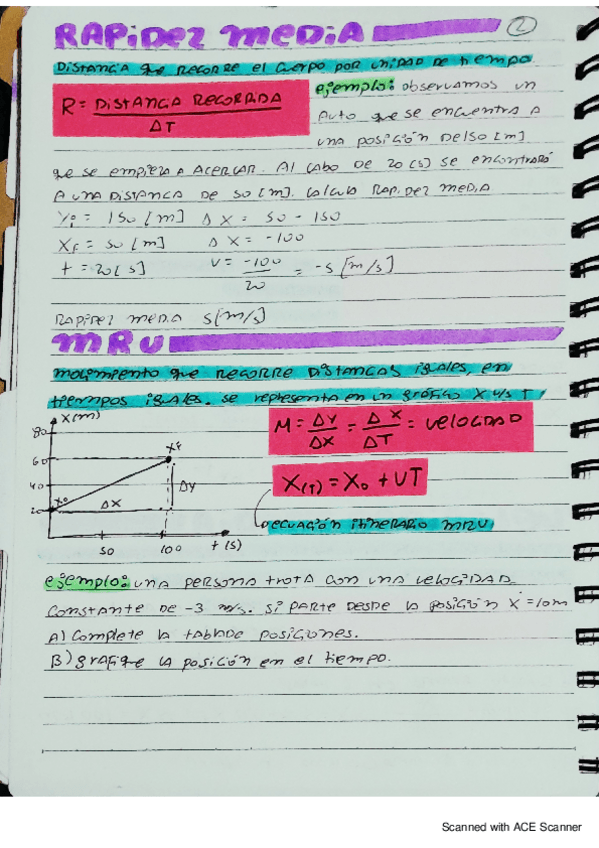 RAPIDEZ MEDIA
2
DISTANCIA que RECORRE el CUERPO POR UNIDAD DE tiempo.
R = DISTANCIA RECORRIDA
ΔT
ejemplo: observamos un
AUTO que se encuentra a
una posición De 150 [m]
que se empieza a acercar. Al cabo de 20 [s] se encontrará
A una DISTANCIA DE 50 [m]. Calcula RAPIDEZ MEDIA
Xi = 150 [m] Δ X = 50 - 150
XF = 50 [m] Δ X = -100
t = 20 [s] V = -100
20
= -5 [m/s]
RAPIDEZ MEDIA 5 [m/s]
MRU
movimiento que RECORRE DISTANCIAS iguales, en
tiempos iguales. se representa en un gráfico X v/s T
X(m)
80
60
40
20
X0
XF
ΔX
ΔY
50 100 t (s)
M = ΔY/ΔX = ΔX/ΔT = VELOCIDAD
X(T) = X0 + VT
ecuación itinerario MRU
ejemplo: una persona trota con una velocidad
constante de -3 m/s. si parte desde la posición X = 10m
A) Complete la tabla de posiciones.
B) grafique la posición en el tiempo.
Scanned with ACE Scanner